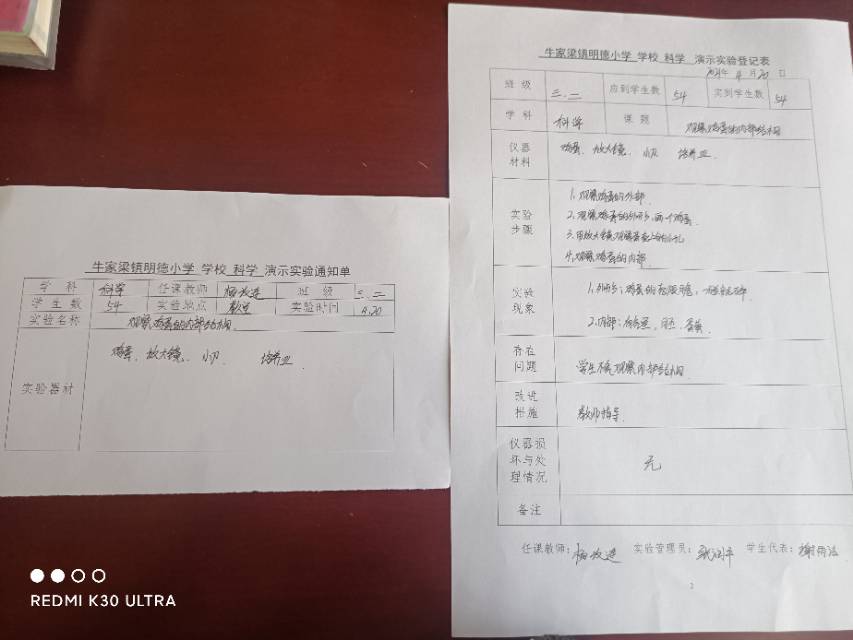 牛家梁镇明德小学 学校 科学 演示实验通知单
学 科 科学 任课教师 班 级 三.二
学 生 数 54 实验地点 教室 实验时间 4.20
实验名称 观察鸡蛋的内部结构
鸡蛋、放大镜、小刀 培养皿
实验器材
牛家梁镇明德小学 学校 科学 演示实验登记表
年 4 月 20 日
班 级 三.二 应到学生数 54 实到学生数 54
学 科 科学 课 题 观察鸡蛋的内部结构
仪器材料 鸡蛋、放大镜、小刀 培养皿.
实验步骤
1.观察鸡蛋的外部.
2.观察鸡蛋的外形,画一个鸡蛋.
3.用放大镜观察蛋壳上的小孔
4.观察鸡蛋的内部.
实验现象
1.外形:鸡蛋的
2.内部:
存在问题 学生不会观察内部结构
改进措施 教师指导.
仪器损坏与处理情况 无
备注
任课教师: 实验管理员: 学生代表:
REDMI K30 ULTRA